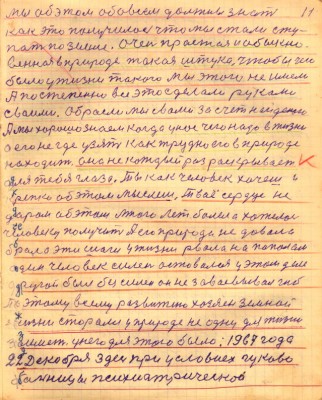 мы об этом обо всём должны знать 11
Как это получилось что мы стали сту
пать по земле. Очень простая и обычно.
венная в природе такая штука, чтобы ни
было у жизни такого мы этого не имеем
А постепенно все это сделали руками
своими.
А мы хорошо знаем когда у кого чего надо в жизни
а его негде взять как трудно его в природе
находить. она не каждый раз раскрывает
для тебя глаза. Ты как человек хочешь и
крепко об этом мыслиш. Твоё сердце не
даром об этом много лет болела хотелось
человеку получить а его природа не довала
брала эти шаги у жизни рвала на пополам
один человек силен оставался у этом деле
другой был бусилен он не завоёвывал способ
поэтому всему развитию хозяен земной
жизни старался у природе не одну для жизни
: 1967 года
22 Декабря здесь при условиях чухово
больницы психиатрической